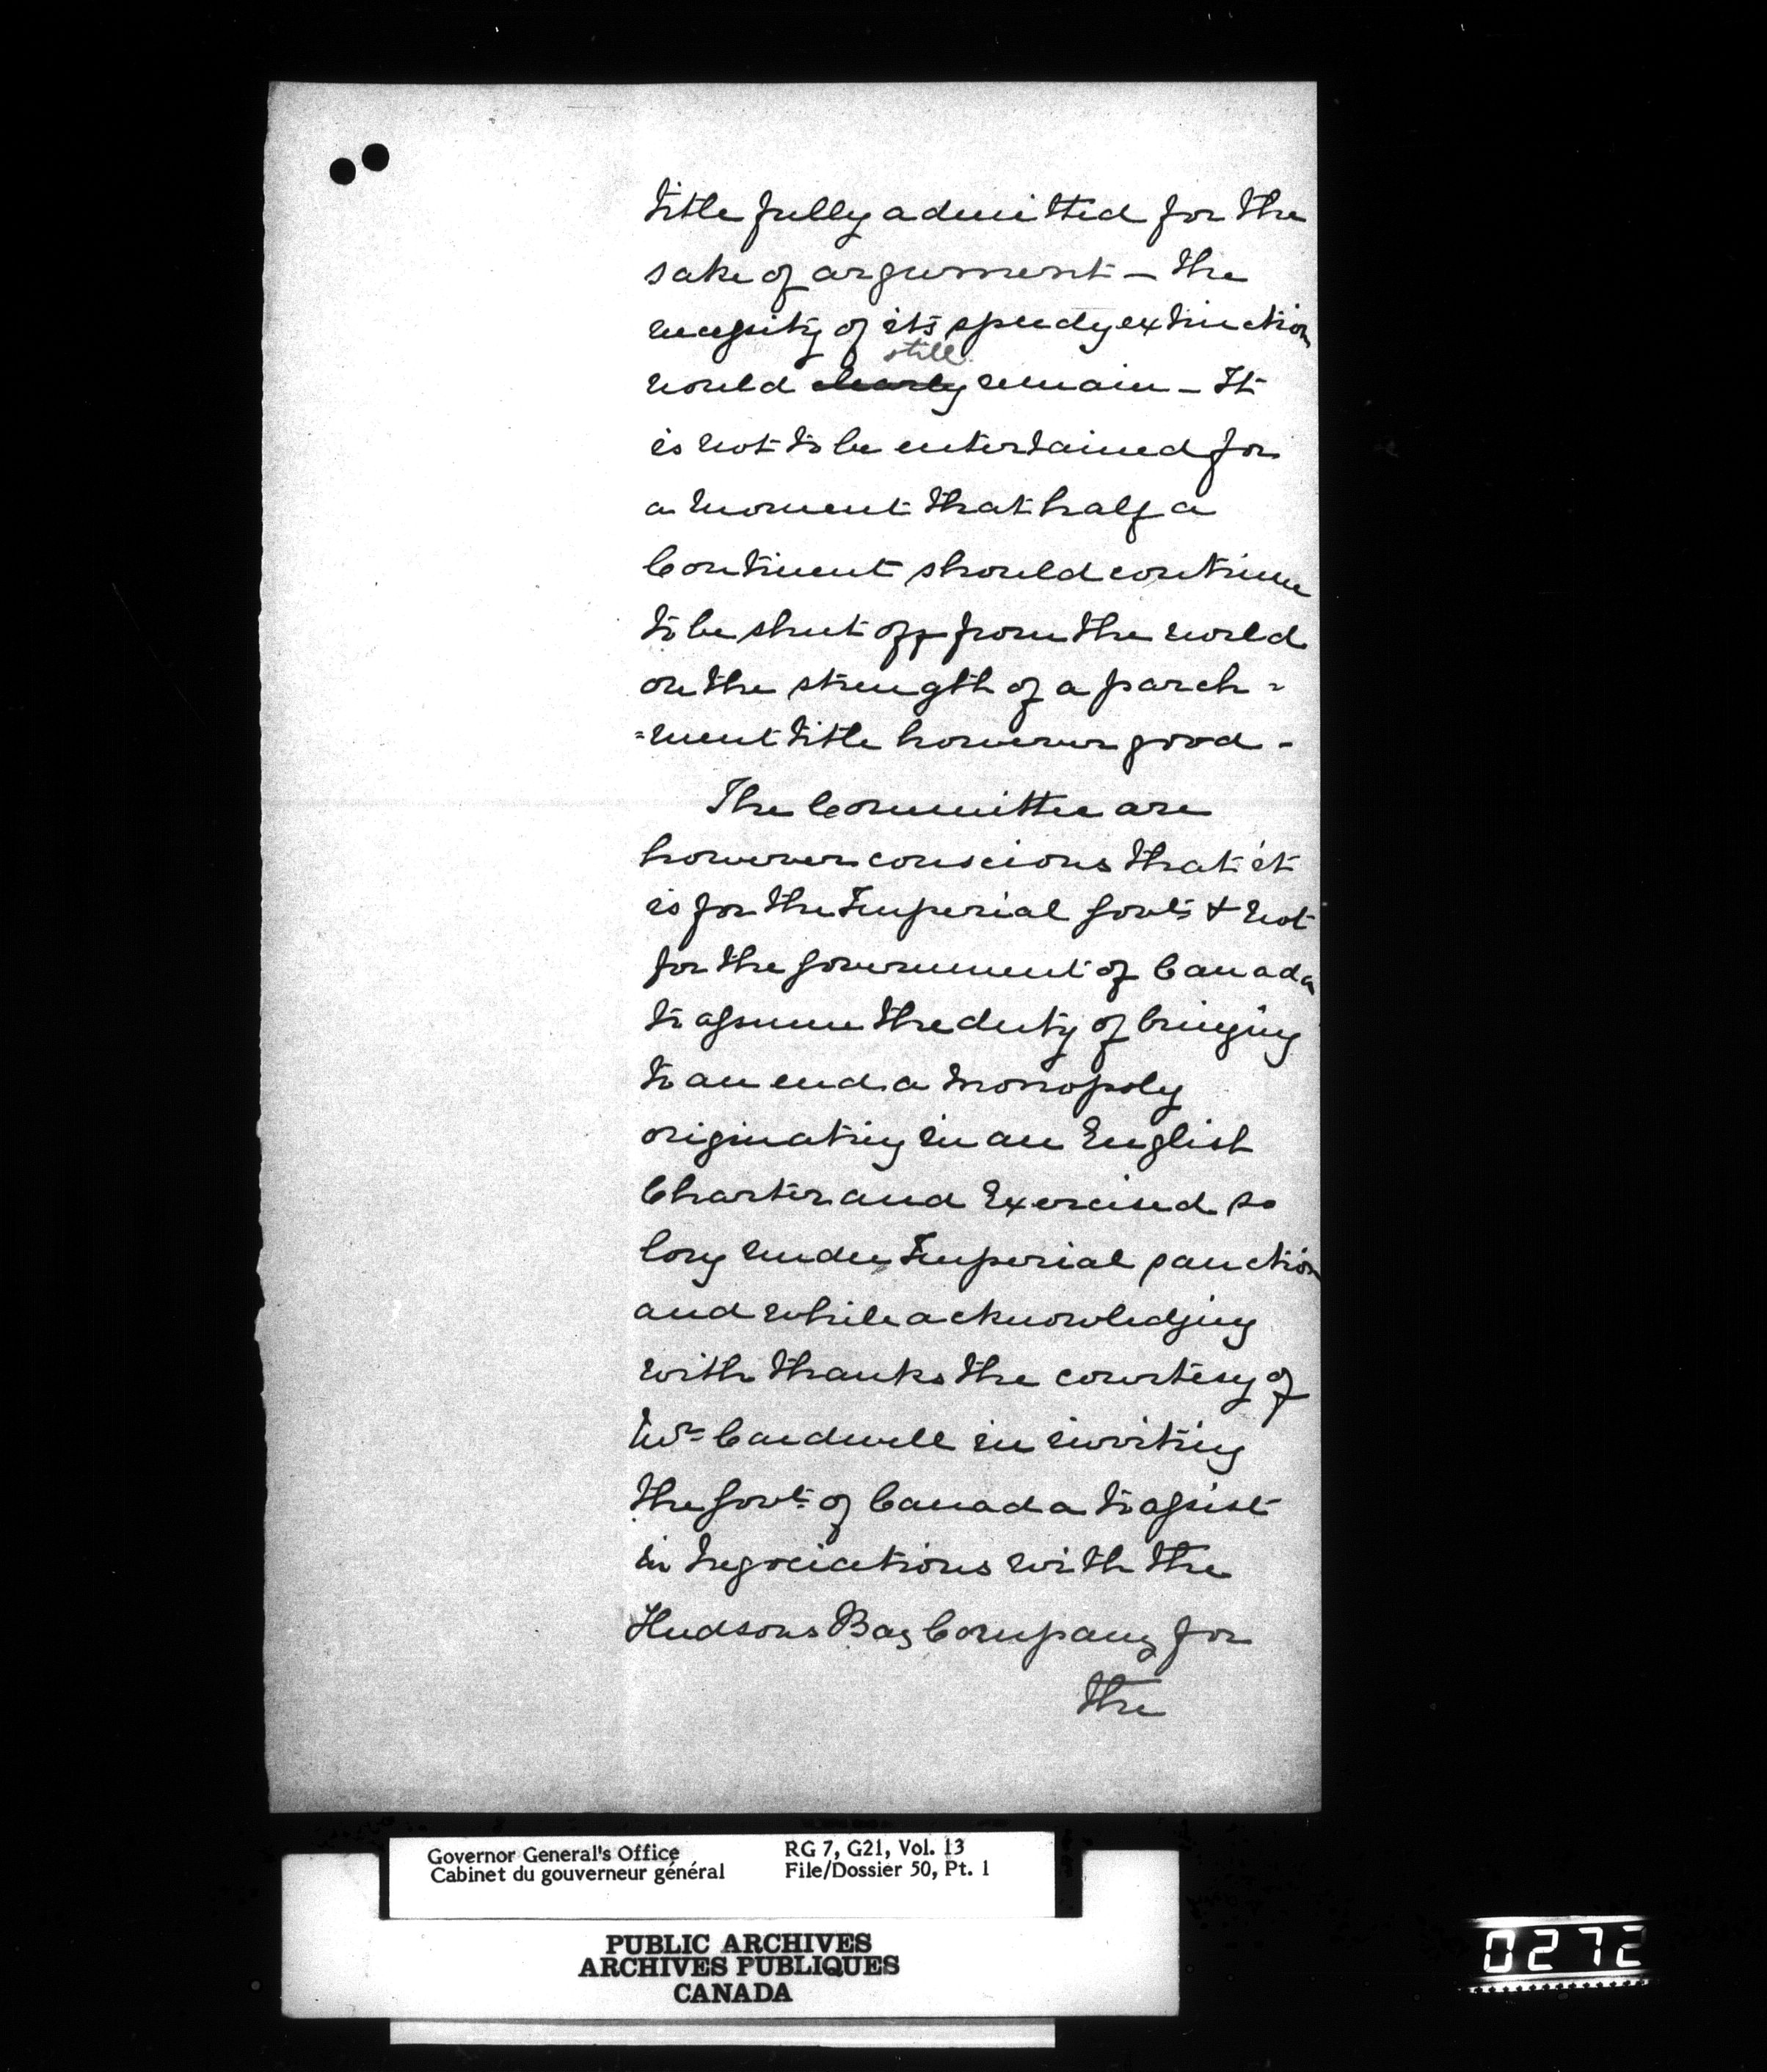 title fully admitted for the
sake of argument – the
necessity of its speedy extinction
still
would clearly remain – It
is not to be entertained for
a moment that half a
Continent should continue
to be shut off from the world
on the strength of a parch=
=ment title however good –
The Committee are
however conscious that it
is for the Imperial Govt & not
for the Government of Canada
to assume the duty of bringing
to an end a monopoly
originating in an English
Charter and Exercised so
long under Imperial sanction
and while acknowledging
with thanks the courtesy of
Mr Cardwell in inviting
the Govt of Canada to assist
in negociations with the
Hudsons Bay Company for
the
Governor General's Office
Cabinet du gouverneur général
RG 7, G21, Vol. 13
File/Dossier 50, Pt. 1
PUBLIC ARCHIVES
ARCHIVES PUBLIQUES
CANADA
0272